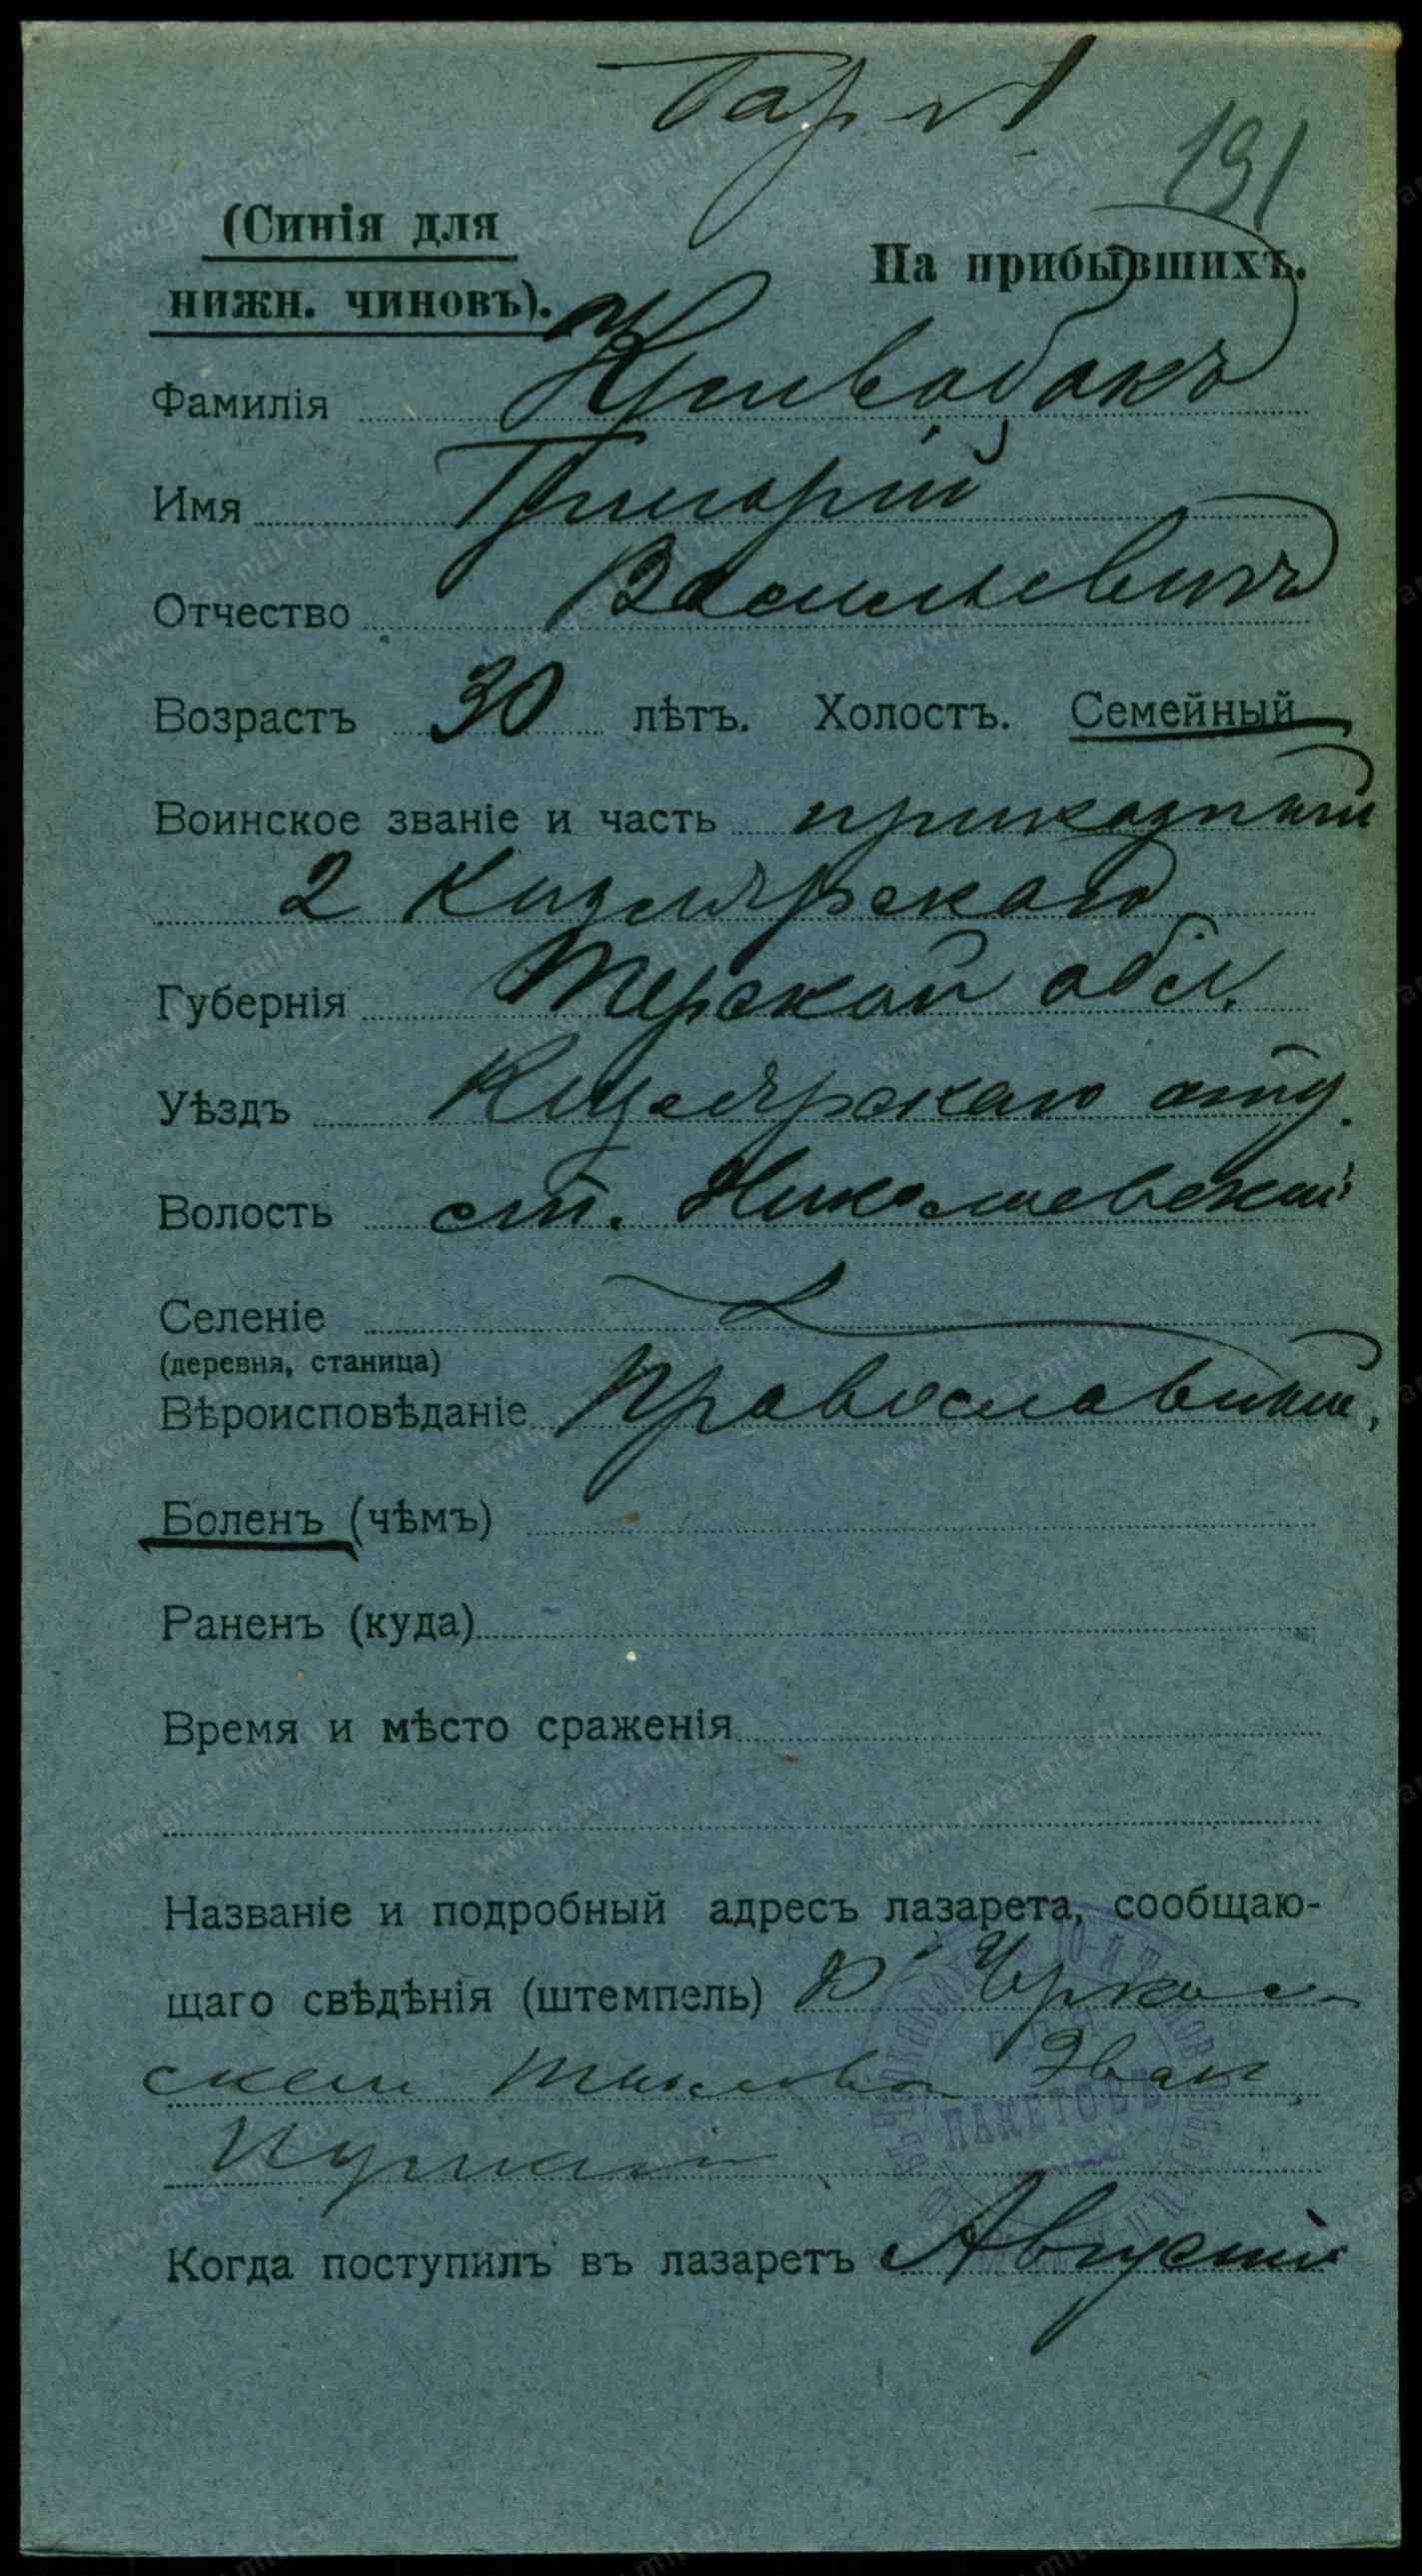 191
(Синія для
На прибывшихъ.
нижн. чиновъ).
Фамилія Кривобокъ
Имя Григорій
Отчество Васильевичъ
Возрастъ 30 лѣтъ. Холостъ. Семейный
Воинское званіе и часть приказный
2 Кизлярскаго
Губернія Терской обл.
Уѣздъ Кизлярскаго отд.
Волость ст. Николаевской
Селеніе
(деревня, станица)
Вѣроисповѣданіе Православный,
Боленъ (чѣмъ)
Раненъ (куда)
Время и мѣсто сраженія
Названіе и подробный адресъ лазарета, сообщаю-
щаго свѣдѣнія (штемпель) В Черкас-
ском тылово Эвак
Пункт
ПАКЕТОВЪ
Когда поступилъ въ лазаретъ Август